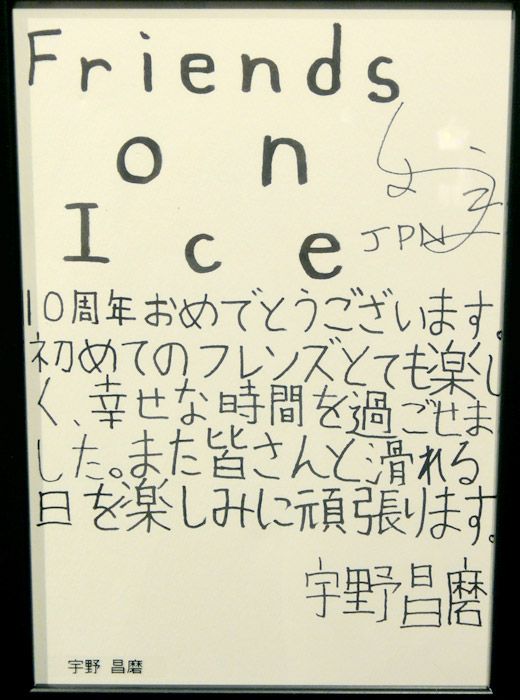 Friends
on
Ice
JPN
10周年おめでとうございます。
初めてのフレンズとても楽し
く、幸せな時間を過ごせま
した。また皆さんと滑れる
日を楽しみに頑張ります。
宇野昌磨
宇野 昌磨